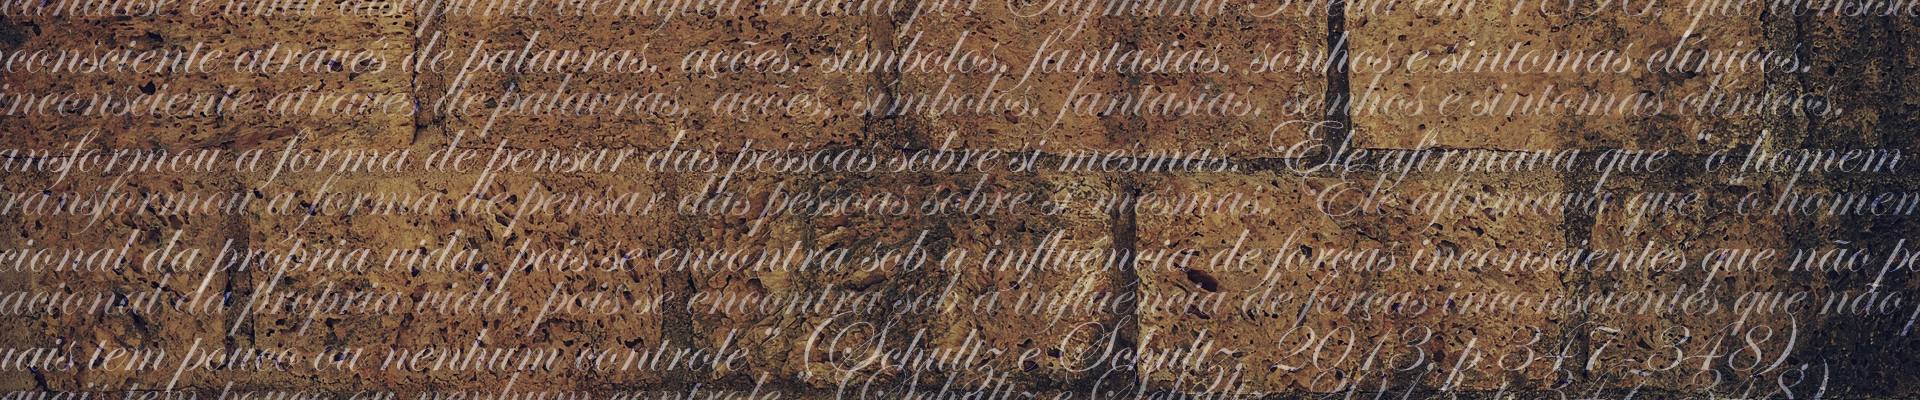 é uma disciplina científica criada por Sigmund Freud em 1896, que consiste
consciente através de palavras, ações, símbolos, fantasias, sonhos e sintomas clínicos.
inconsciente através de palavras, ações, símbolos, fantasias, sonhos e sintomas clínicos.
ansformou a forma de pensar das pessoas sobre si mesmas. Ele afirmava que "o homem
ransformou a forma de pensar das pessoas sobre si mesmas. Ele afirmava que "o homem
cional da própria vida, pois se encontra sob a influência de forças inconscientes que não po
acional da própria vida, pois se encontra sob a influência de forças inconscientes que não
uais tem pouco ou nenhum controle" (Schultz e Schultz, 2013, p 347-348).
quais tem pouco ou nenhum controle" (Schultz e Schultz, 2013, p 347-348).